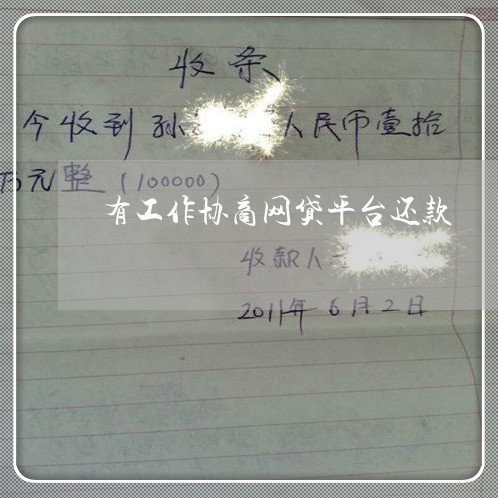 收条
今收到孙 人民币壹拾
万元整(100000)
有工作协商网贷平台还款
收款人
2011年6月2日